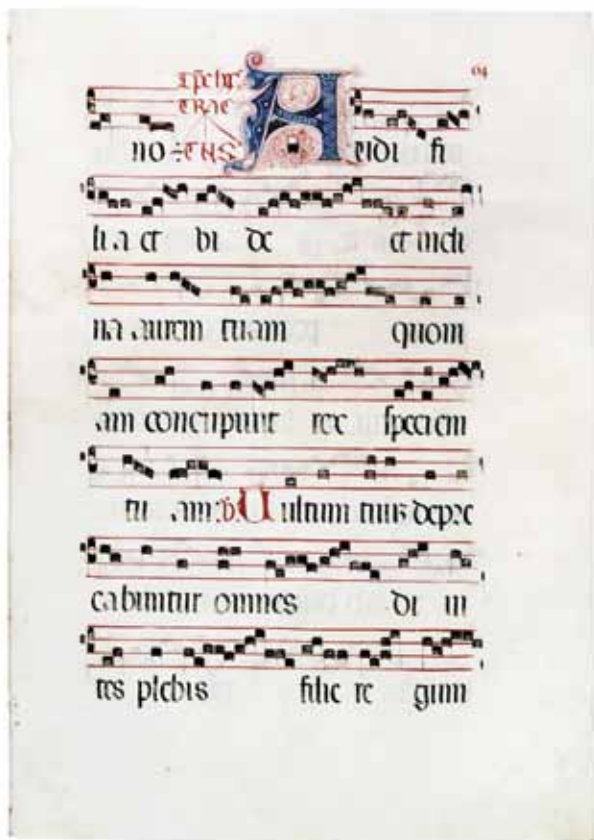 no A udi fi
lia et vi de et incli
na aurem tuam quoni
am concupivit rex speciem
tu am. V. Vultum tuum depre
cabuntur omnes di vi
tes plebis filie re gum